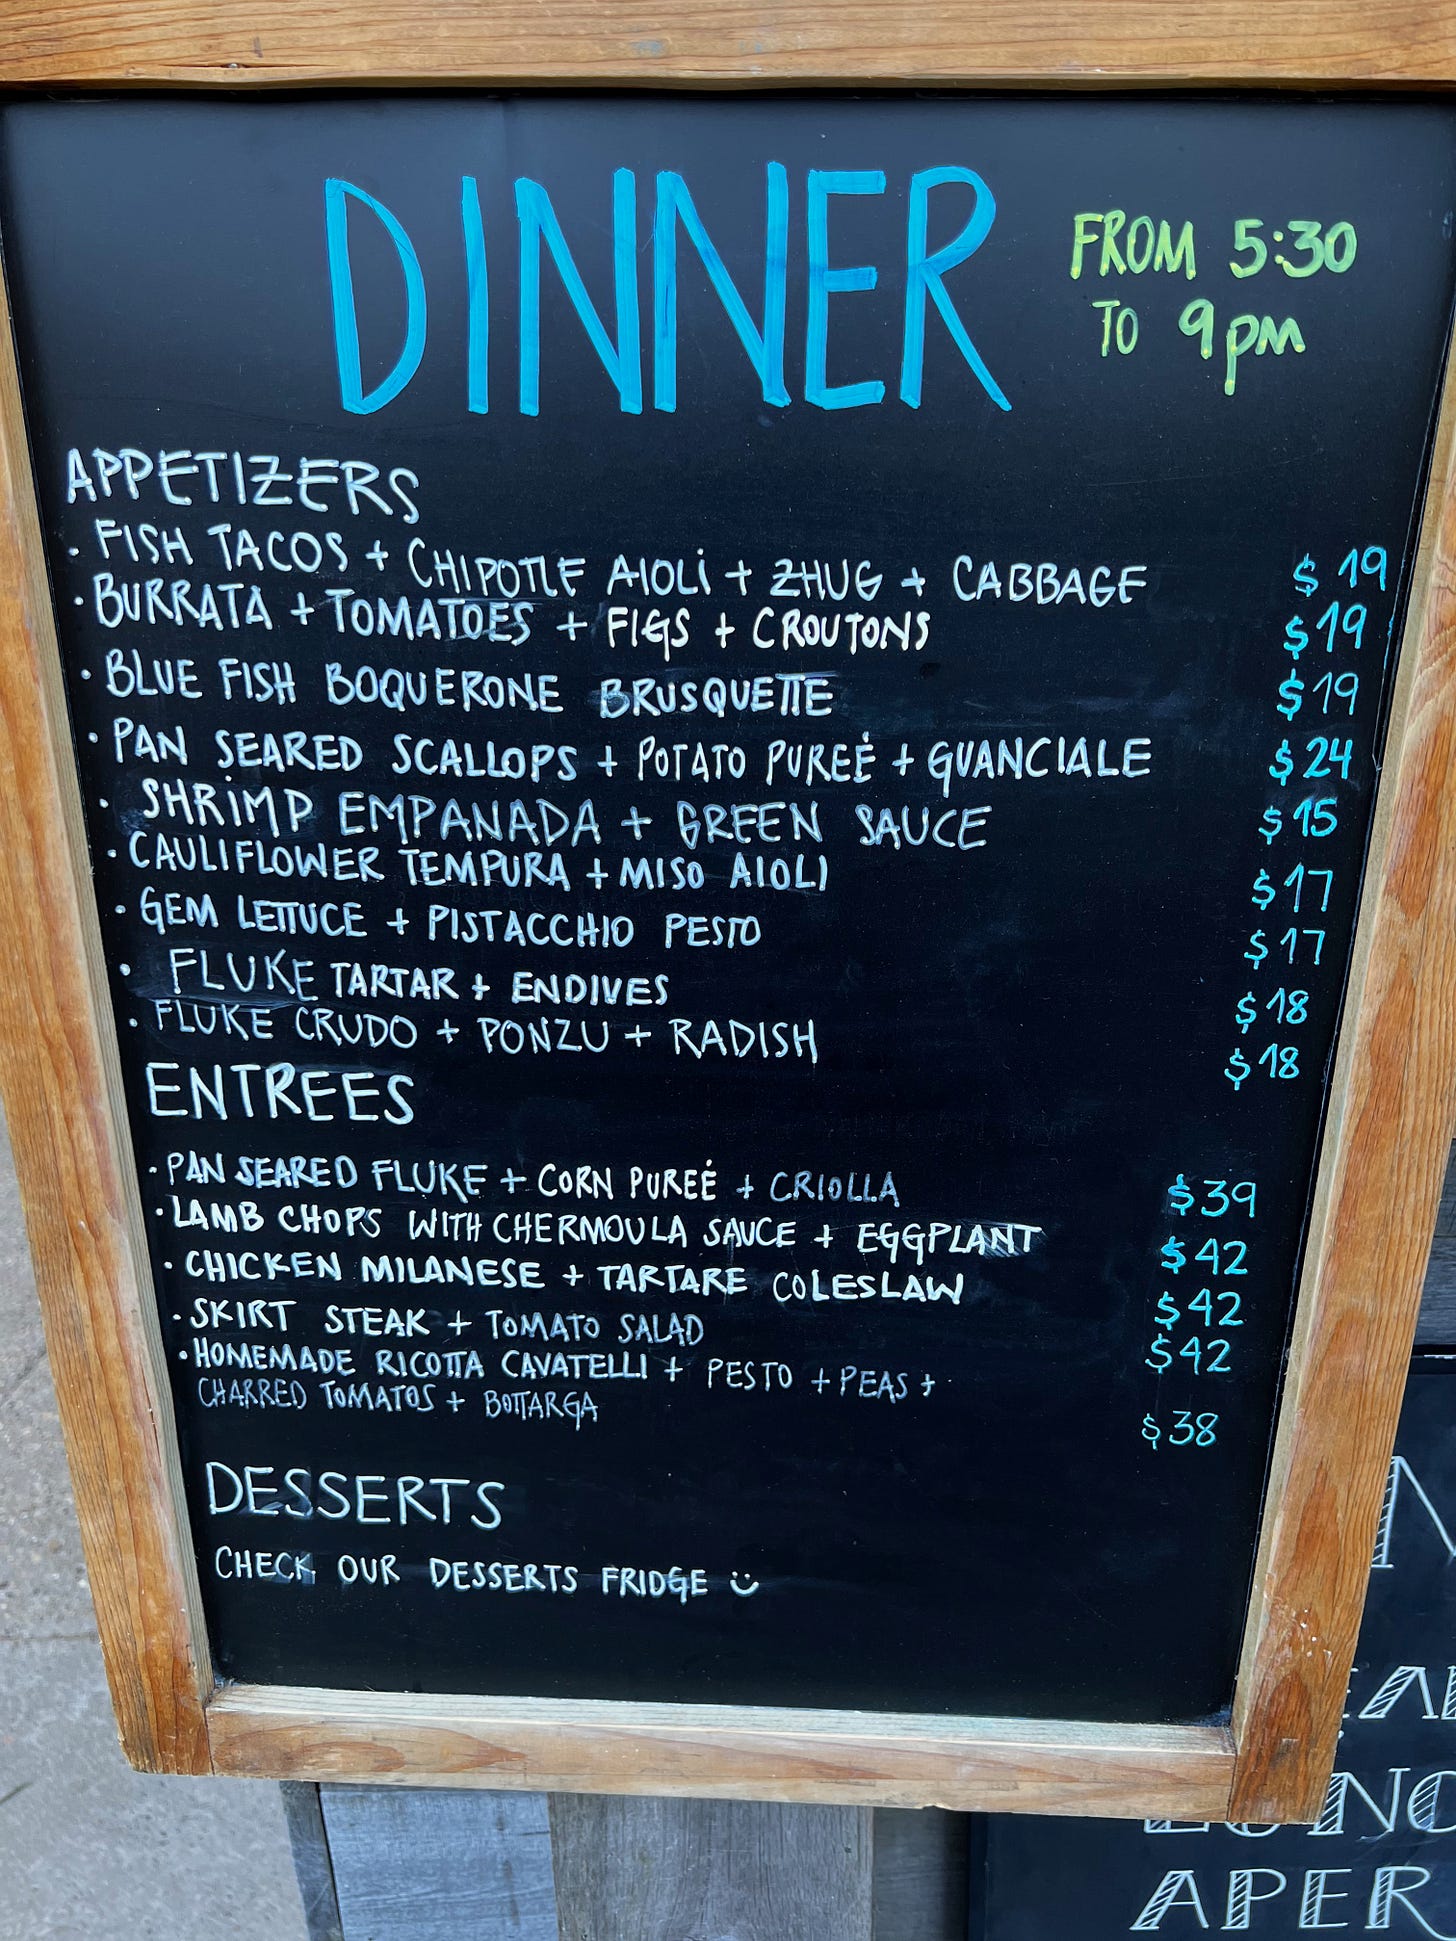 DINNER
FROM 5:30
TO 9pm
APPETIZERS
· FISH TACOS + CHIPOTLE AIOLI + ZHUG + CABBAGE $19
· BURRATA + TOMATOES + FIGS + CROUTONS $19
· BLUE FISH BOQUERONE BRUSQUETTE $19
· PAN SEARED SCALLOPS + POTATO PUREÉ + GUANCIALE $24
· SHRIMP EMPANADA + GREEN SAUCE $15
· CAULIFLOWER TEMPURA + MISO AIOLI $17
· GEM LETTUCE + PISTACCHIO PESTO $17
· FLUKE TARTAR + ENDIVES $18
· FLUKE CRUDO + PONZU + RADISH $18
ENTREES
· PAN SEARED FLUKE + CORN PUREÉ + CRIOLLA $39
· LAMB CHOPS WITH CHERMOULA SAUCE + EGGPLANT $42
· CHICKEN MILANESE + TARTARE COLESLAW $42
· SKIRT STEAK + TOMATO SALAD $42
· HOMEMADE RICOTTA CAVATELLI + PESTO + PEAS +
CHARRED TOMATOS + BOTTARGA $38
DESSERTS
CHECK OUR DESSERTS FRIDGE
APER